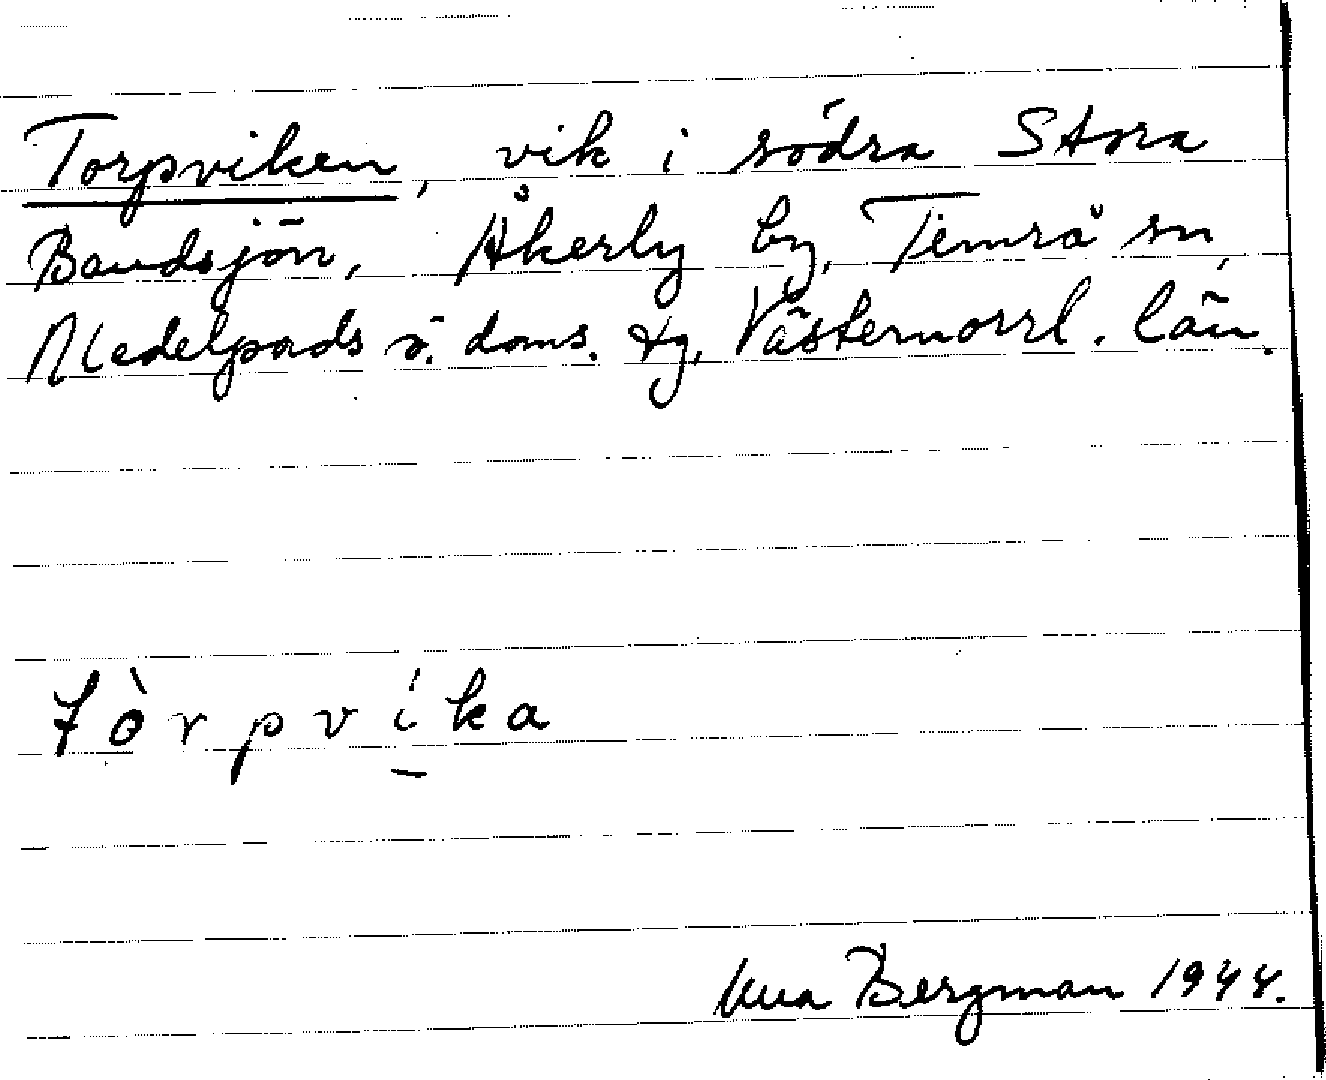 Torpviken, vik i södra Stora
Bandsjön, Åkerby by, Timrå sn,
Medelpads ö. doms. tg, Västernorrl. län.
tòrpvíka
Bergman 1944.